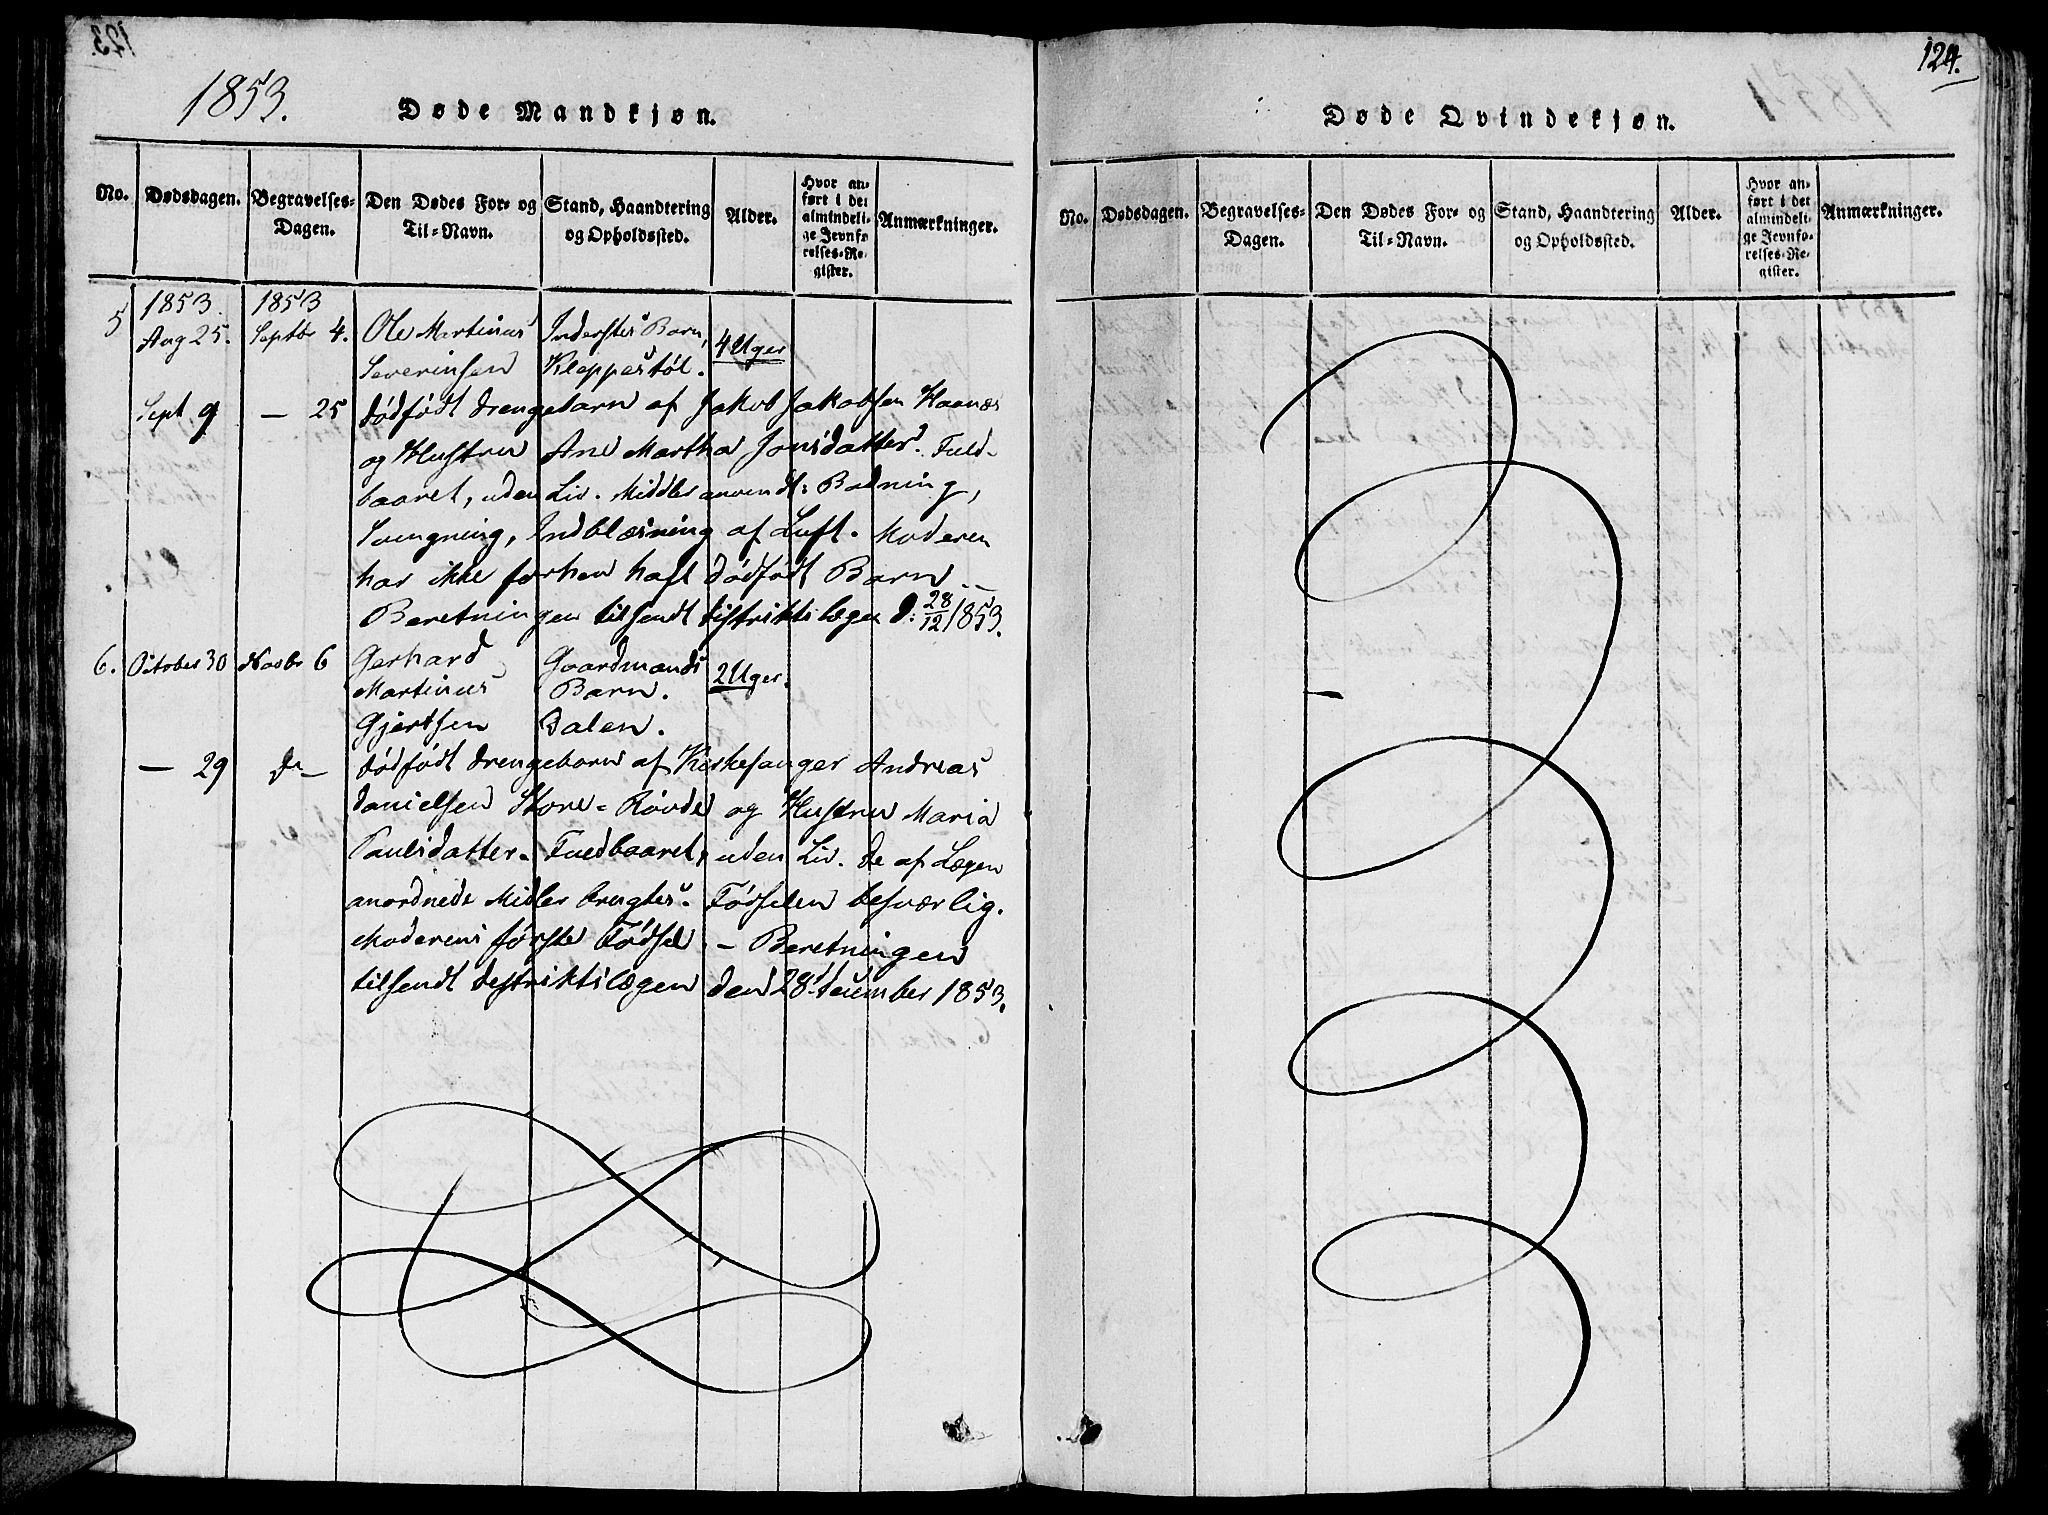 1853.
Døde Mandkjøn.
No.
Dødsdagen.
Begravelses-
Dagen.
Den Dødes For- og
Til-Navn.
Stand, Haandtering
og Opholdssted.
Alder.
Hvor an-
ført i det
almindeli-
ge Jevnfø-
relses-Re-
gister.
Anmærkninger.
5 1853. Aug 25. 1853 Septbr 4. Ole Martinus Inderstes Barn, 4 Uger
Severinsen Kleppestøl.
Sept 9 — 25 Dødfødt Drengebarn af Jakob Jakobsen Haanæs
og Hustru Ane Martha Jonsdatter. Fuld-
baaret, uden Liv. Midler anvendt: Badning,
Svingning, Indblæsning af Luft. Moderen
har ikke forhen haft dødfødt Barn. —
Beretningen tilsendt Distriktslægen d: 28/12 1853.
6. October 30 Novbr 6 Gerhard Gaardmands 2 Uger.
Martinus Barn.
Gjertsen Dalen.
— 29 Do — Dødfødt Drengebarn af Kirkesanger Andreas
Danielsen Store-Røvde og Hustru Maria
Paulsdatter. Fuldbaaret, uden Liv. De af Lægen
anordnede Midler brugtes. Fødselen besværlig.
Moderens første Fødsel. — Beretningen
tilsendt Distriktslægen den 28. December 1853.
124.
Døde Qvindekjøn.
No.
Dødsdagen.
Begravelses-
Dagen.
Den Dødes For- og
Til-Navn.
Stand, Haandtering
og Opholdssted.
Alder.
Hvor an-
ført i det
almindeli-
ge Jevnfø-
relses-Re-
gister.
Anmærkninger.